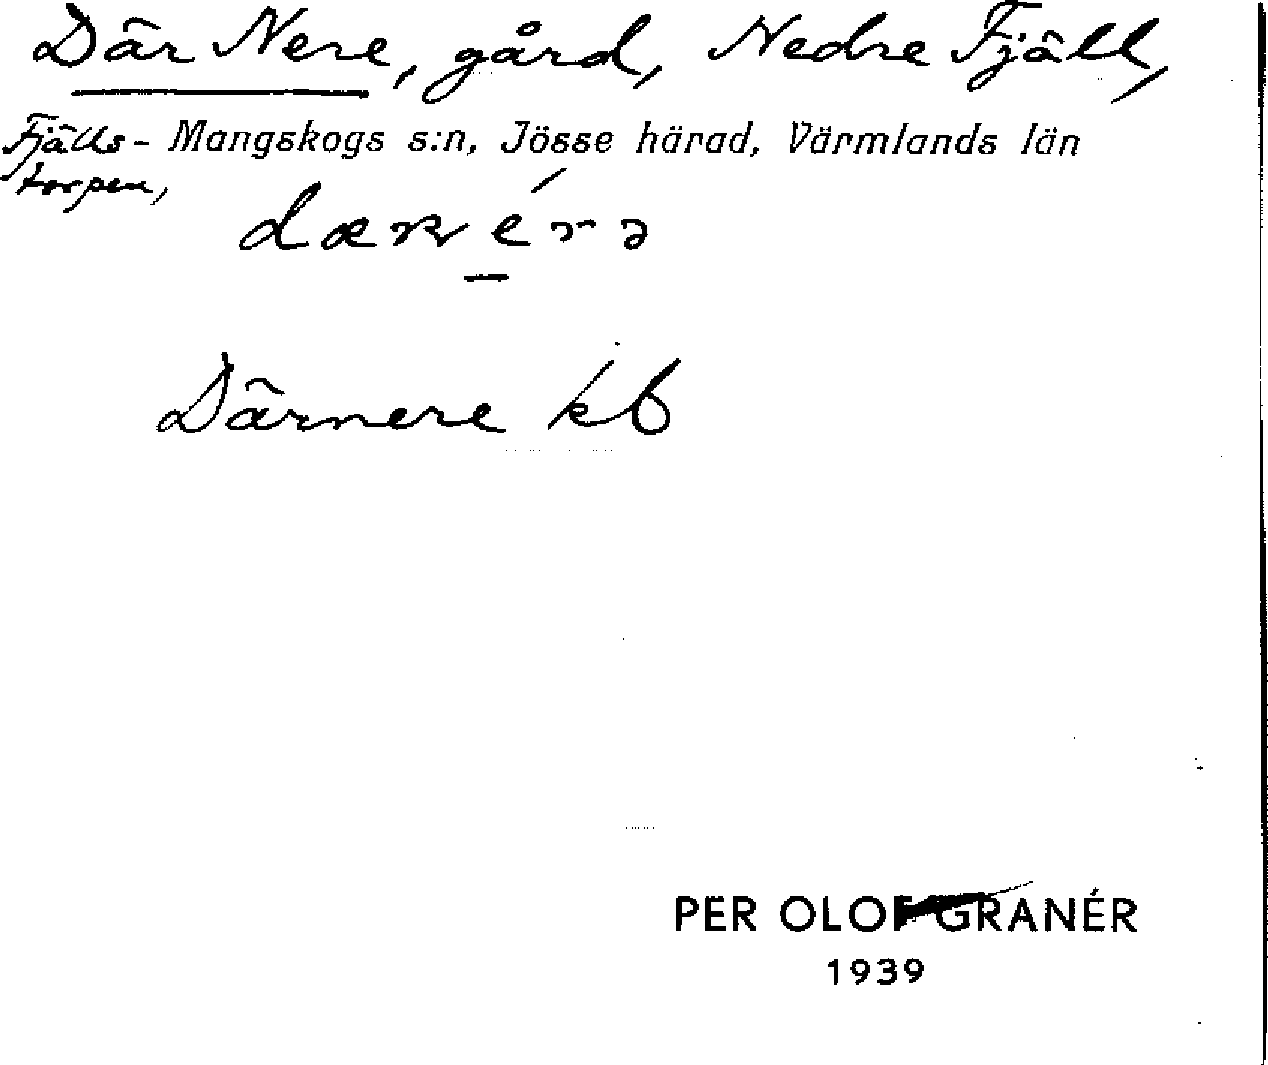 Där Nere, gård, Nedre Fjäll,
Fjälls- Mangskogs s:n, Jösse härad, Värmlands län
torpen,
Därnere kb
PER OLOF GRANÉR
1939